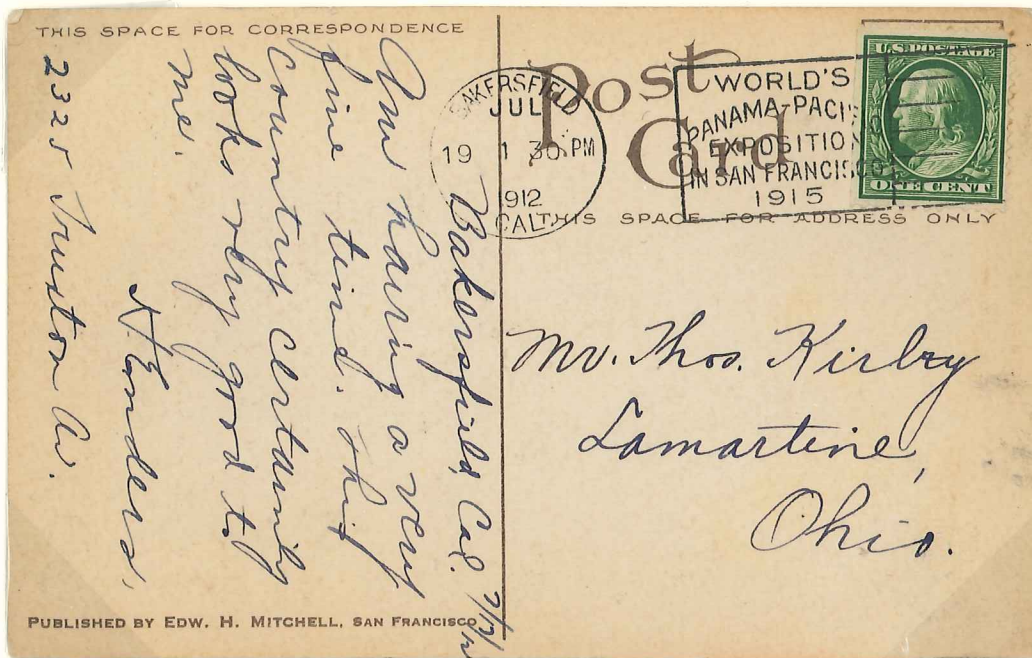 THIS SPACE FOR CORRESPONDENCE
Bakersfield, Cal.
Am having a very
fine time. This
country certainly
looks very good to
me.
H. Enders,
2325 Truxton Av.
PUBLISHED BY EDW. H. MITCHELL, SAN FRANCISCO
Post
Card
BAKERSFIELD
JUL
19 1 30 PM
1912
CAL.
WORLD'S
PANAMA-PACIFIC
EXPOSITION
IN SAN FRANCISCO
1915
U.S. POSTAGE
ONE CENT
THIS SPACE FOR ADDRESS ONLY
Mr. Thos. Kirby
Lamartine,
Ohio.